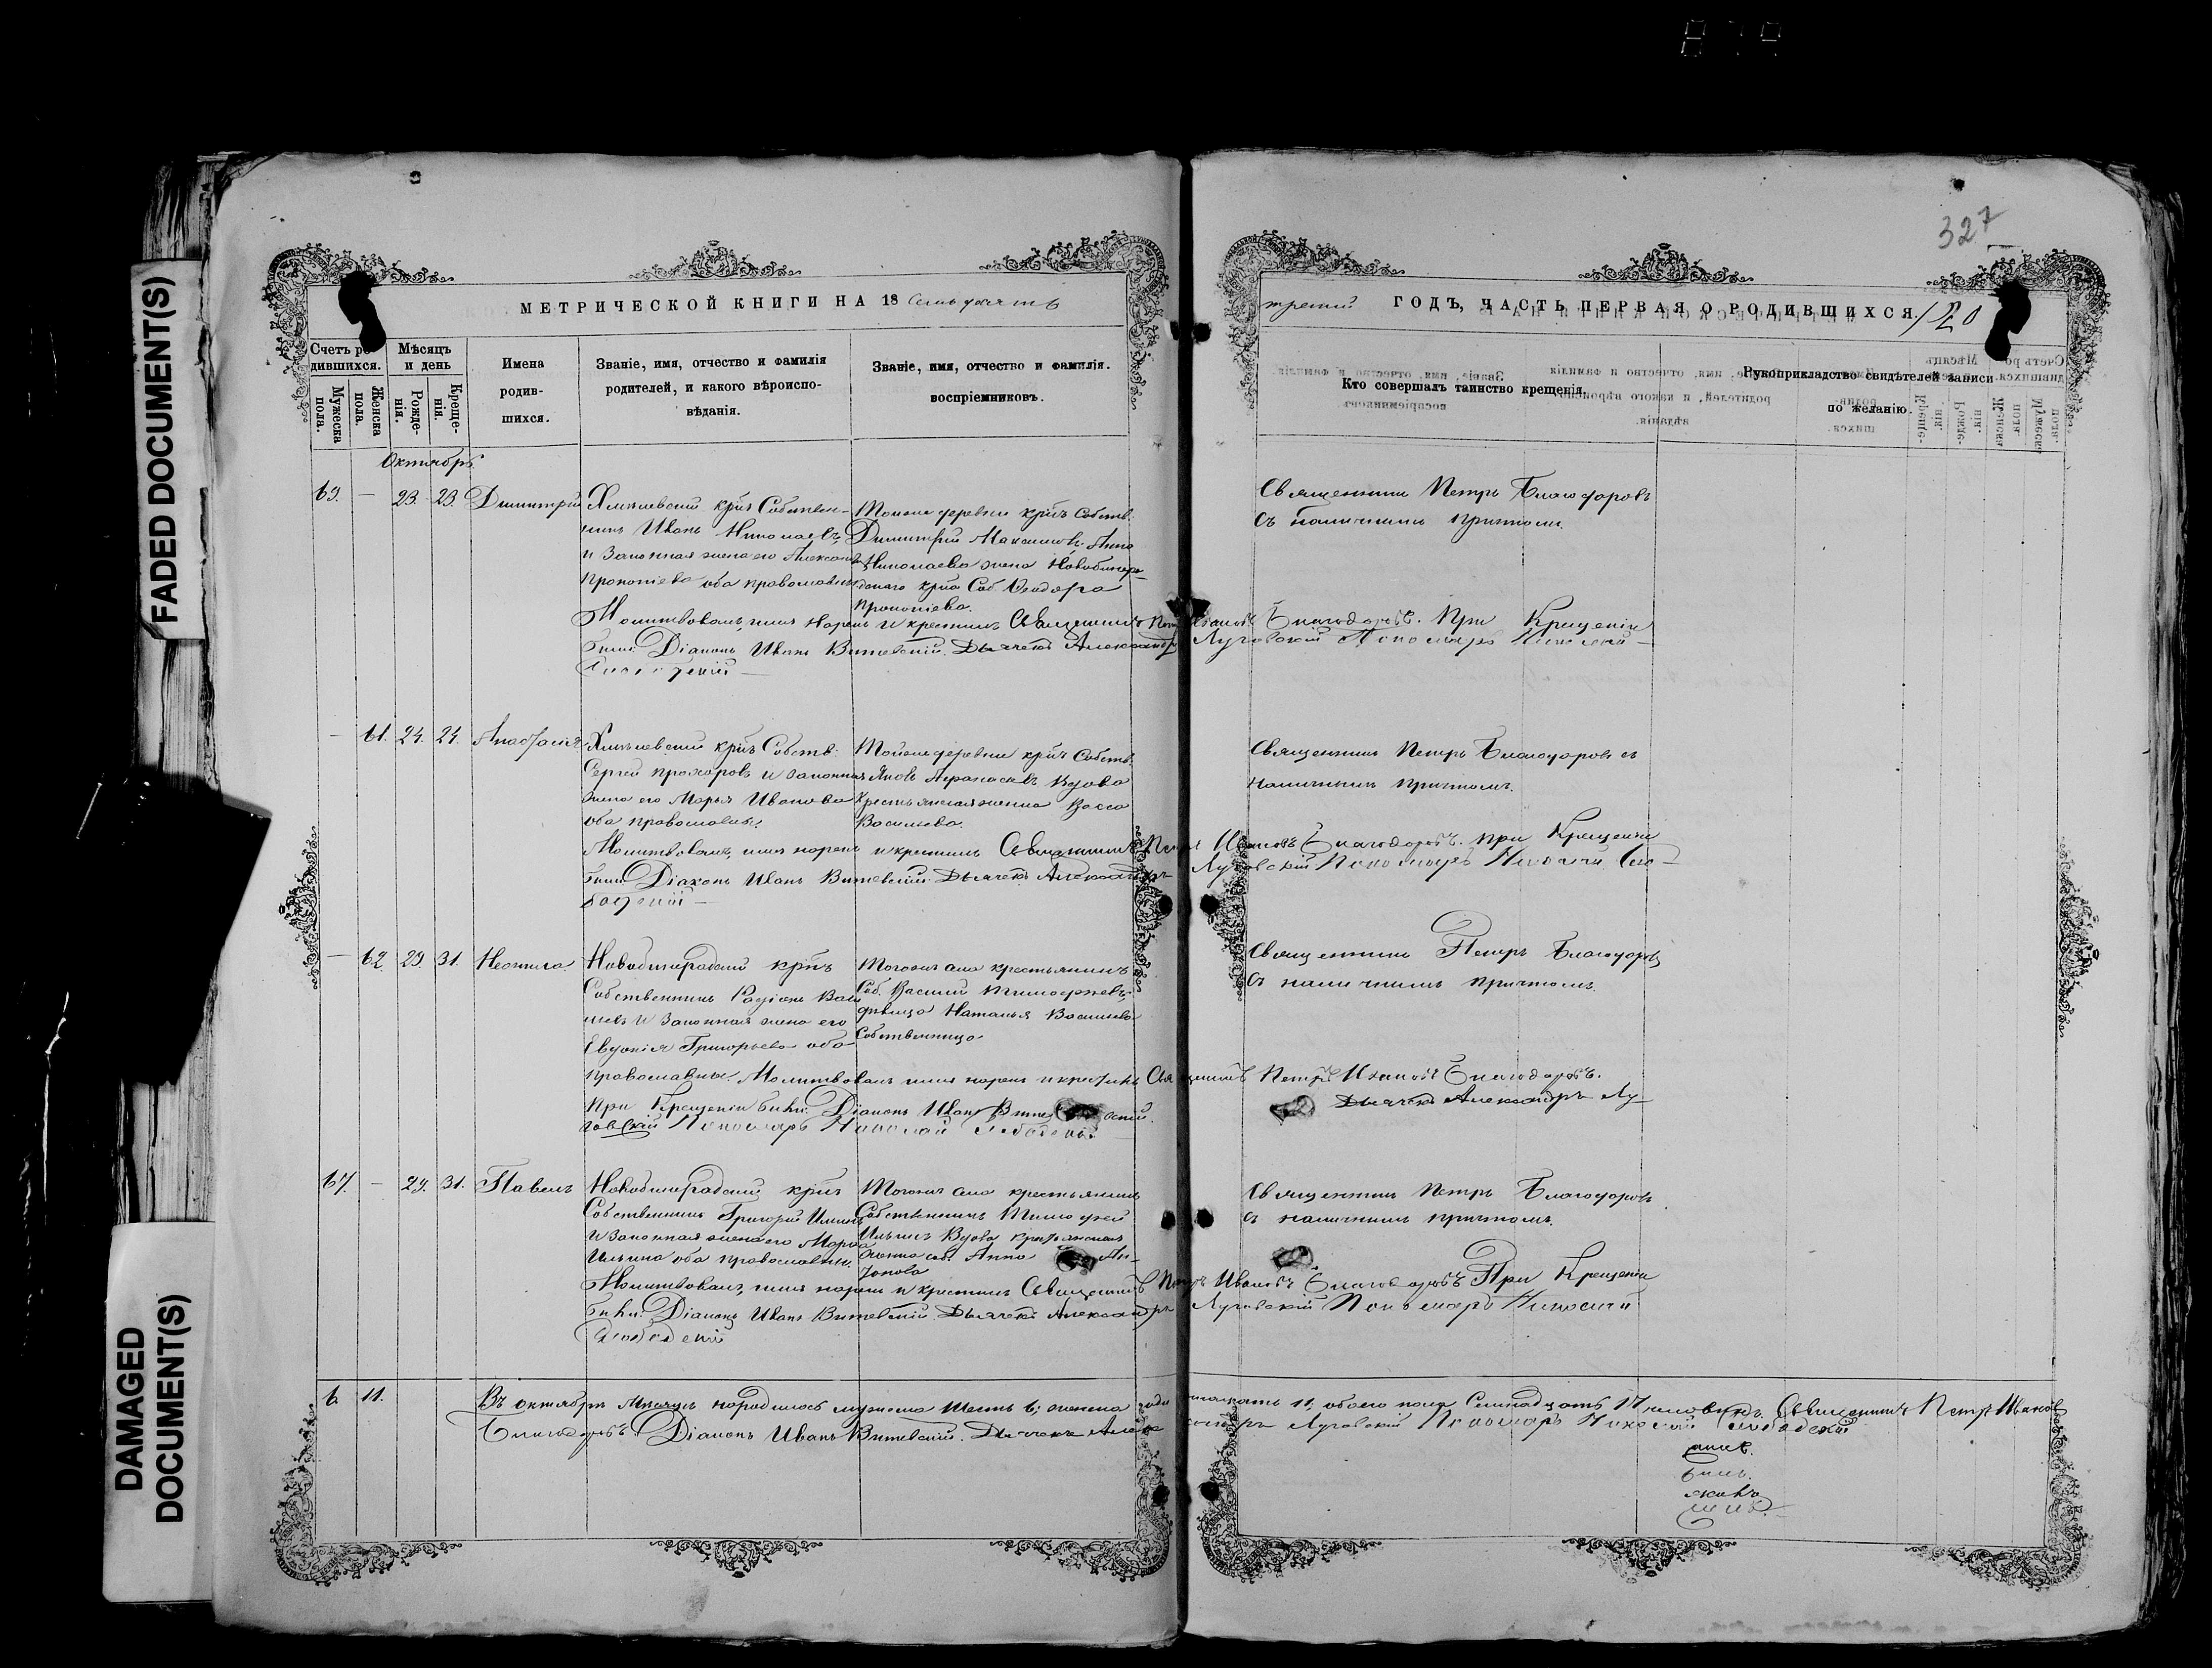 FADED DOCUMENT(S)
DAMAGED
DOCUMENT(S)
327
МЕТРИЧЕСКОЙ КНИГИ НА 18 Семьдесятъ
третій ГОДЪ, ЧАСТЬ ПЕРВАЯ О РОДИВШИХСЯ.
120
Счетъ ро-
дившихся.
Мужеска
пола.
Женска
пола.
Мѣсяцъ
и день
Рожде-
нія.
Креще-
нія.
Имена
родив-
шихся.
Званіе, имя, отчество и фамилія
родителей, и какого вѣроиспо-
вѣданія.
Званіе, имя, отчество и фамилія.
воспріемниковъ.
Кто совершалъ таинство крещенія.
Рукоприкладство свидѣтелей записи
по желанію.
Октябрь
63. — 23. 23. Димитрій
крнъ Собствен-
никъ Иванъ Николаевъ
и Законная жена его
Прокопіева оба православные
Тойже деревни крнъ Собств.
Димитрій Максимовъ Анна
Николаева жена
крна Соб. Ѳеодора
Прокопіева.
Священникъ Петръ Благодаровъ
съ наличнымъ причтомъ.
Молитвовалъ, имя нарекъ и крестилъ Священникъ Петръ Ивановъ Благодаровъ. При Крещеніи
были: Діаконъ Иванъ Витевскій. Дьячекъ Александръ Луговскій Пономарь Николай
— 61. 24. 24. Анастасія
крнъ Собств.
Сергей Прохоровъ и законная
жена его Марья Иванова
оба православные.
Тойже деревни крнъ Собств.
Яковъ Афанасьевъ Вдова
Крестьянская женка Васса
Васильева.
Священникъ Петръ Благодаровъ съ
наличнымъ причтомъ.
Молитвовалъ, имя нарекъ и крестилъ Священникъ Петръ Ивановъ Благодаровъ. при Крещеніи
были Діаконъ Иванъ Витевскій. Дьячекъ Александръ Луговскій Пономарь Николай Сло-
бодскій —
— 62. 29. 31. Неонила.
крнъ
Собственникъ Родіонъ Васи
льевъ и Законная жена его
Евдокія Григорьева оба
Тогожъ села крестьянинъ
Соб. Василій Тимофеевъ,
дѣвица Наталья Васильева
Собственница
Священникъ Петръ Благодаровъ
съ наличнымъ причтомъ.
православные. Молитвовалъ имя нарекъ и крестилъ Священникъ Петръ Ивановъ Благодаровъ.
При Крещеніи были: Діаконъ Иванъ Дьячекъ Александръ Лу-
говскій Пономарь Николай Слободскій
67. — 29. 31. Павелъ
крнъ
Собственникъ Григорій Ильинъ
и Законная жена его Марѳа
Ильина оба православные.
Тогожъ села крестьянинъ
Собственникъ Тимофей
Ильинъ Вдова крестьянская
женка соб. Анна Ан-
тонова
Священникъ Петръ Благодаровъ
съ наличнымъ причтомъ.
Молитвовалъ, имя нарекъ и крестилъ Священникъ Петръ Ивановъ Благодаровъ При Крещеніи
были: Діаконъ Иванъ Витевскій. Дьячекъ Александръ Луговскій Пономарь Николай
Слободскій
6. 11. Въ октябрѣ Мѣсяцѣ народилось мужеска Шесть 6; женска одиннадцать 11, обоего пола Семнадцать 17 человѣкъ. Священникъ Петръ Ивановъ
Благодаровъ. Діаконъ Иванъ Витевскій. Дьячекъ Александръ Луговскій Пономарь Николай Слободскій